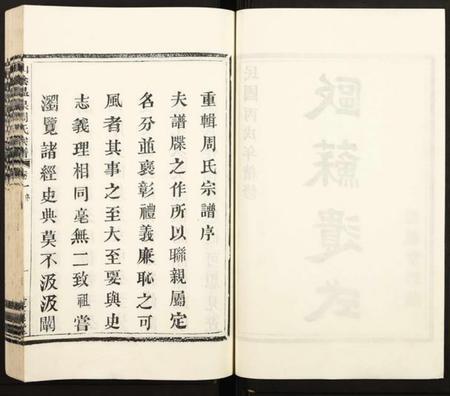 重輯周氏宗譜序
夫譜牒之作所以聯親屬定
名分並褒彰禮義廉恥之可
風者其事之至大至要與史
志義理相同毫無二致祖嘗
瀏覽諸經史典莫不汲汲闡
民國丙戌年
歐蘇遺式